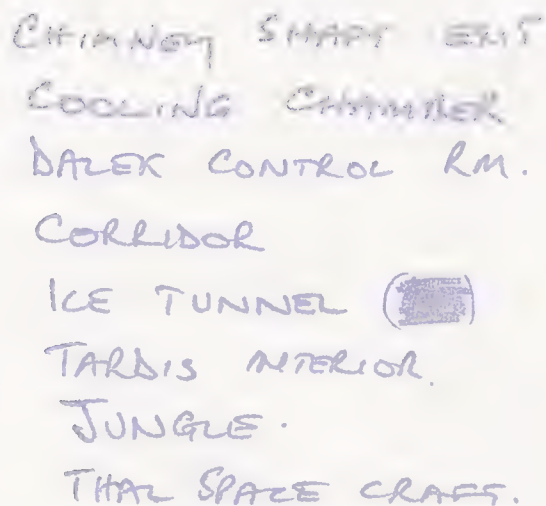 CHIMNEY SHAFT EXIT
COOLING CHAMBER
DALEK CONTROL RM.
CORRIDOR
ICE TUNNEL
TARDIS INTERIOR.
JUNGLE.
THAL SPACE CRAFT.